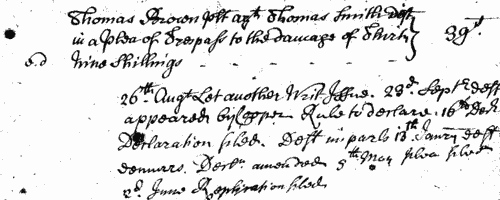 Thomas Brown plt agt Thomas Smith Deft
in a Plea of Trespass to the damage of Thirty } 39s.
e.d nine Shillings
26th Augt Let another Writ Issue. 23d. Septr deft
appeared by Rule to declare. 16th Decr.
Declaration filed. Deft imparls 13th Janry deft
demurrs. Decln amended 5th May plea filed
2d. June Replication filed